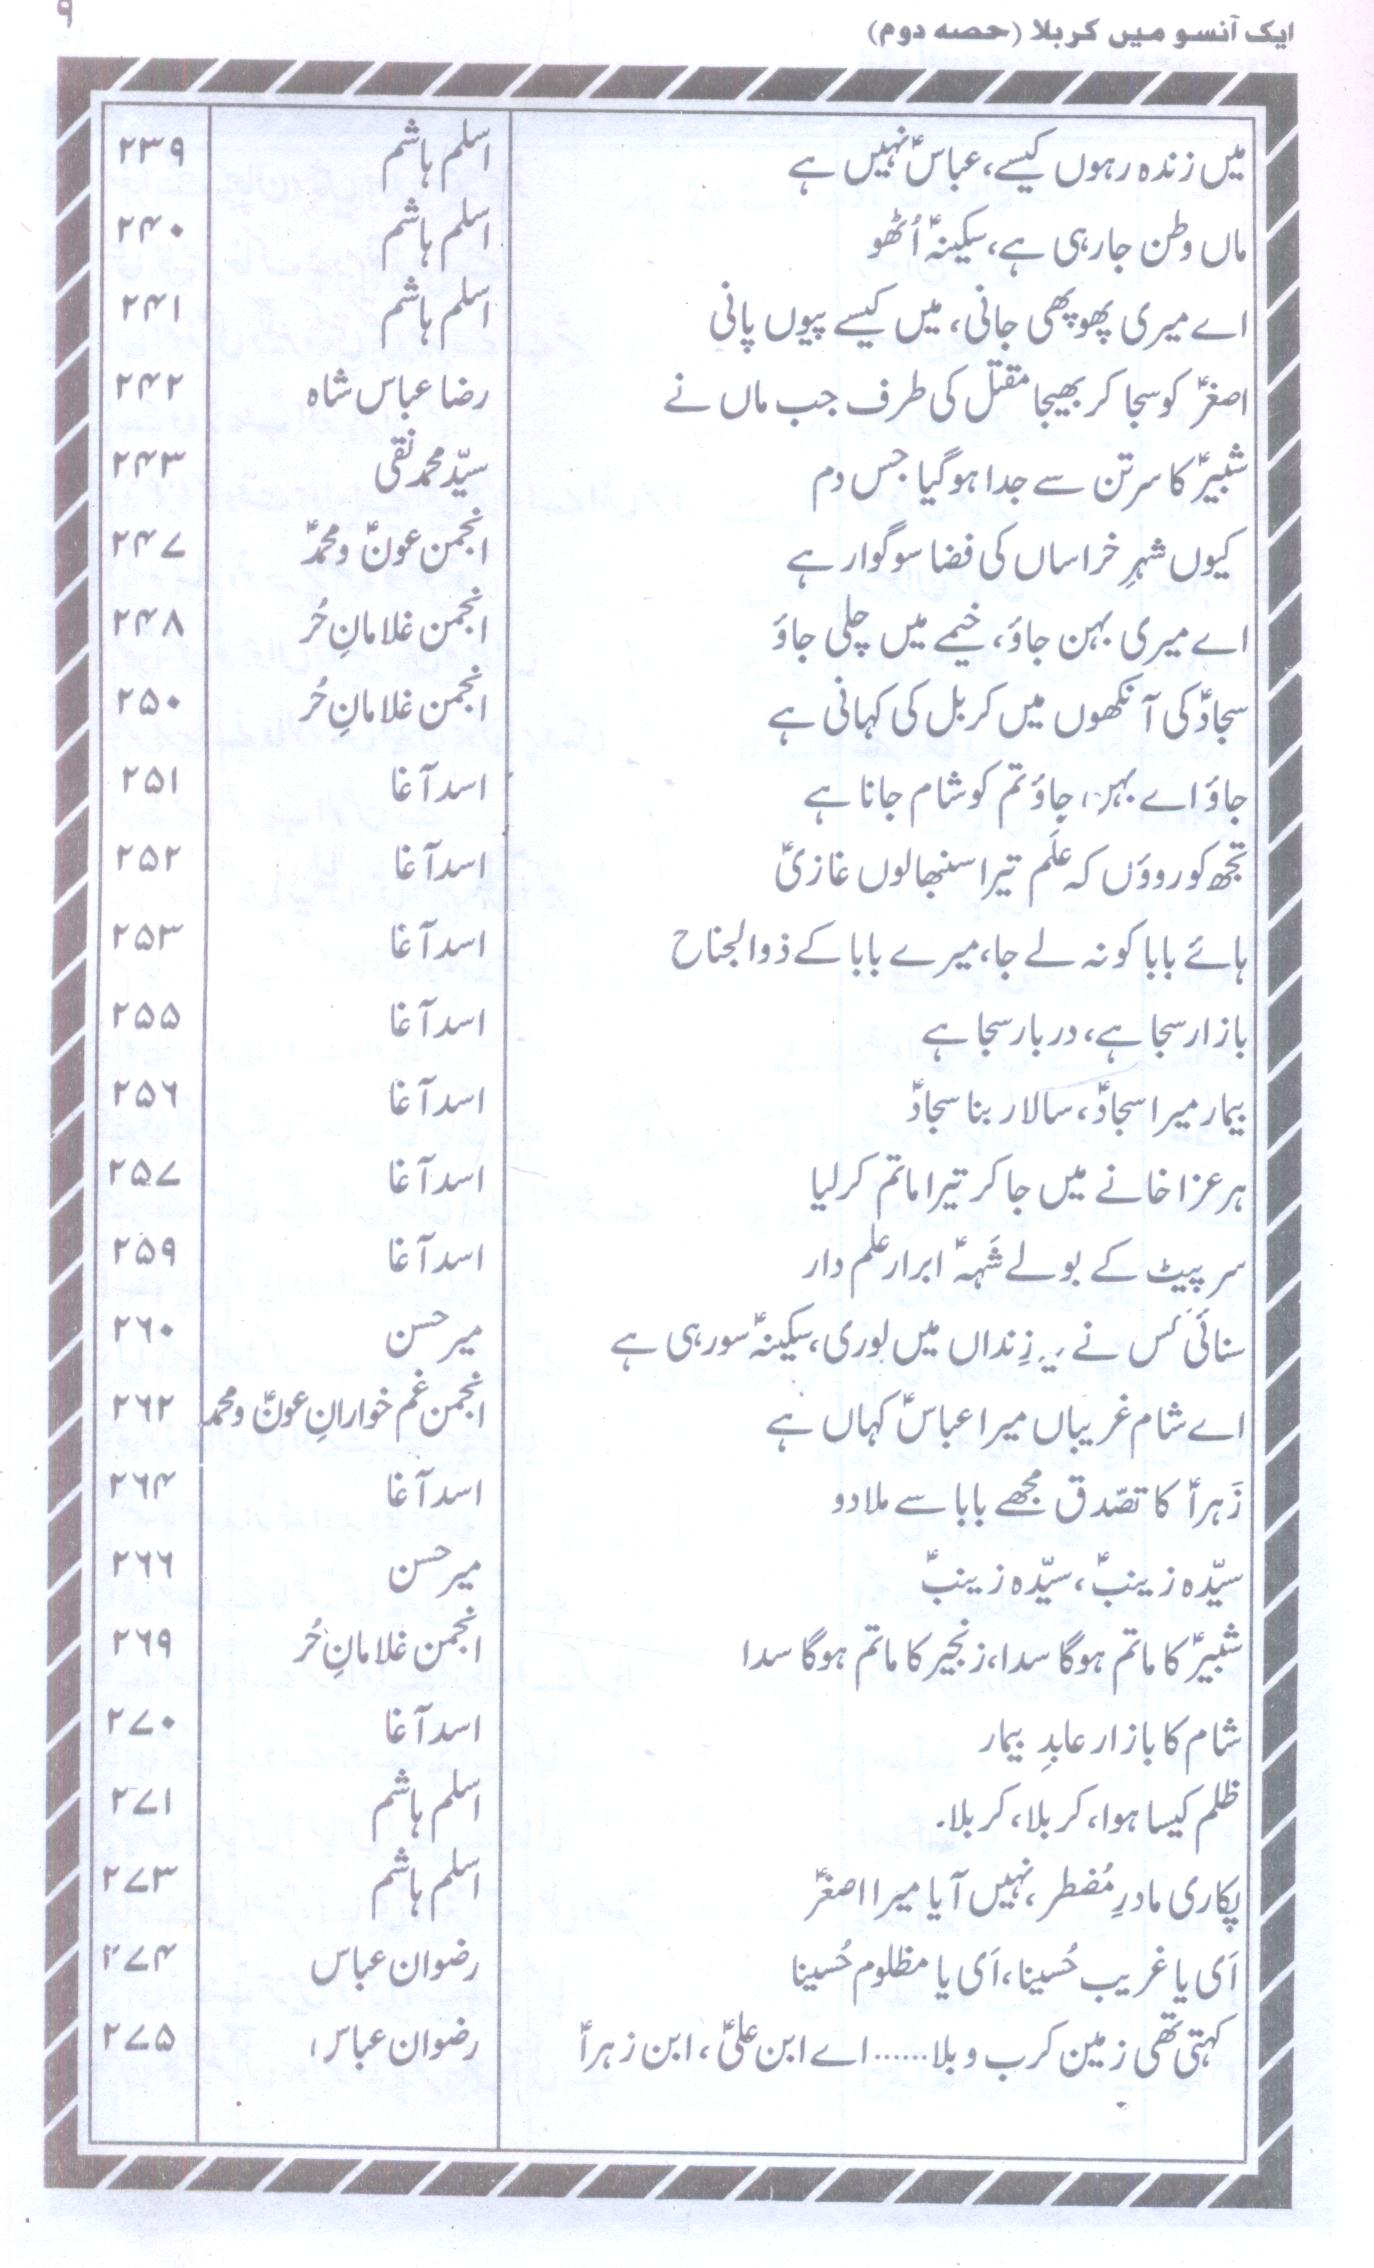 ایک آنسو میں کربلا (حصہ دوم) ۹
میں زندہ رہوں کیسے، عباسؑ نہیں ہے اسلم ہاشم ۲۳۹
ماں وطن جارہی ہے، سکینہؑ اُٹھو اسلم ہاشم ۲۴۰
اے میری پھوپھی جانی، میں کیسے پیوں پانی اسلم ہاشم ۲۴۱
اصغرؑ کو سجا کر بھیجا مقتل کی طرف جب ماں نے رضا عباس شاہ ۲۴۲
شبیرؑ کا سر تن سے جدا ہوگیا جس دم سیّد محمد نقی ۲۴۳
کیوں شہرِ خراساں کی فضا سوگوار ہے انجمن عونؑ و محمدؑ ۲۴۷
اے میری بہن جاؤ، خیمے میں چلی جاؤ انجمن غلامانِ حُر ۲۴۸
سجادؑ کی آنکھوں میں کربل کی کہانی ہے انجمن غلامانِ حُر ۲۵۰
جاؤ اے بہن، جاؤ تم کو شام جانا ہے اسد آغا ۲۵۱
تجھ کو روؤں کہ عَلَم تیرا سنبھالوں غازیؑ اسد آغا ۲۵۲
ہائے بابا کو نہ لے جا، میرے بابا کے ذوالجناح اسد آغا ۲۵۳
بازار سجا ہے، دربار سجا ہے اسد آغا ۲۵۵
بیمار میرا سجادؑ، سالار بنا سجادؑ اسد آغا ۲۵۶
ہر عزا خانے میں جا کر تیرا ماتم کرلیا اسد آغا ۲۵۷
سر پیٹ کے بولے شَہہؑ ابرار علم دار اسد آغا ۲۵۹
سنائی کس نے یہ زِنداں میں لوری، سکینہؑ سورہی ہے میر حسن ۲۶۰
اے شام غریباں میرا عباسؑ کہاں ہے انجمن غم خوارانِ عونؑ و محمد ۲۶۲
زَہراؑ کا تصّدق مجھے بابا سے ملا دو اسد آغا ۲۶۴
سیّدہ زینبؑ، سیّدہ زینبؑ میر حسن ۲۶۶
شبیرؑ کا ماتم ہوگا سدا، زنجیر کا ماتم ہوگا سدا انجمن غلامانِ حُر ۲۶۹
شام کا بازار عابدِ بیمار اسد آغا ۲۷۰
ظلم کیسا ہوا، کربلا، کربلا۔ اسلم ہاشم ۲۷۱
پکاری مادرِ مُضطر، نہیں آیا میرا اصغرؑ اسلم ہاشم ۲۷۳
اَی یا غریب حُسینا، اَی یا مظلوم حُسینا رضوان عباس ۲۷۴
کہتی تھی زمین کرب و بلا...... اے ابن علیؑ، ابن زہراؑ رضوان عباس ۲۷۵